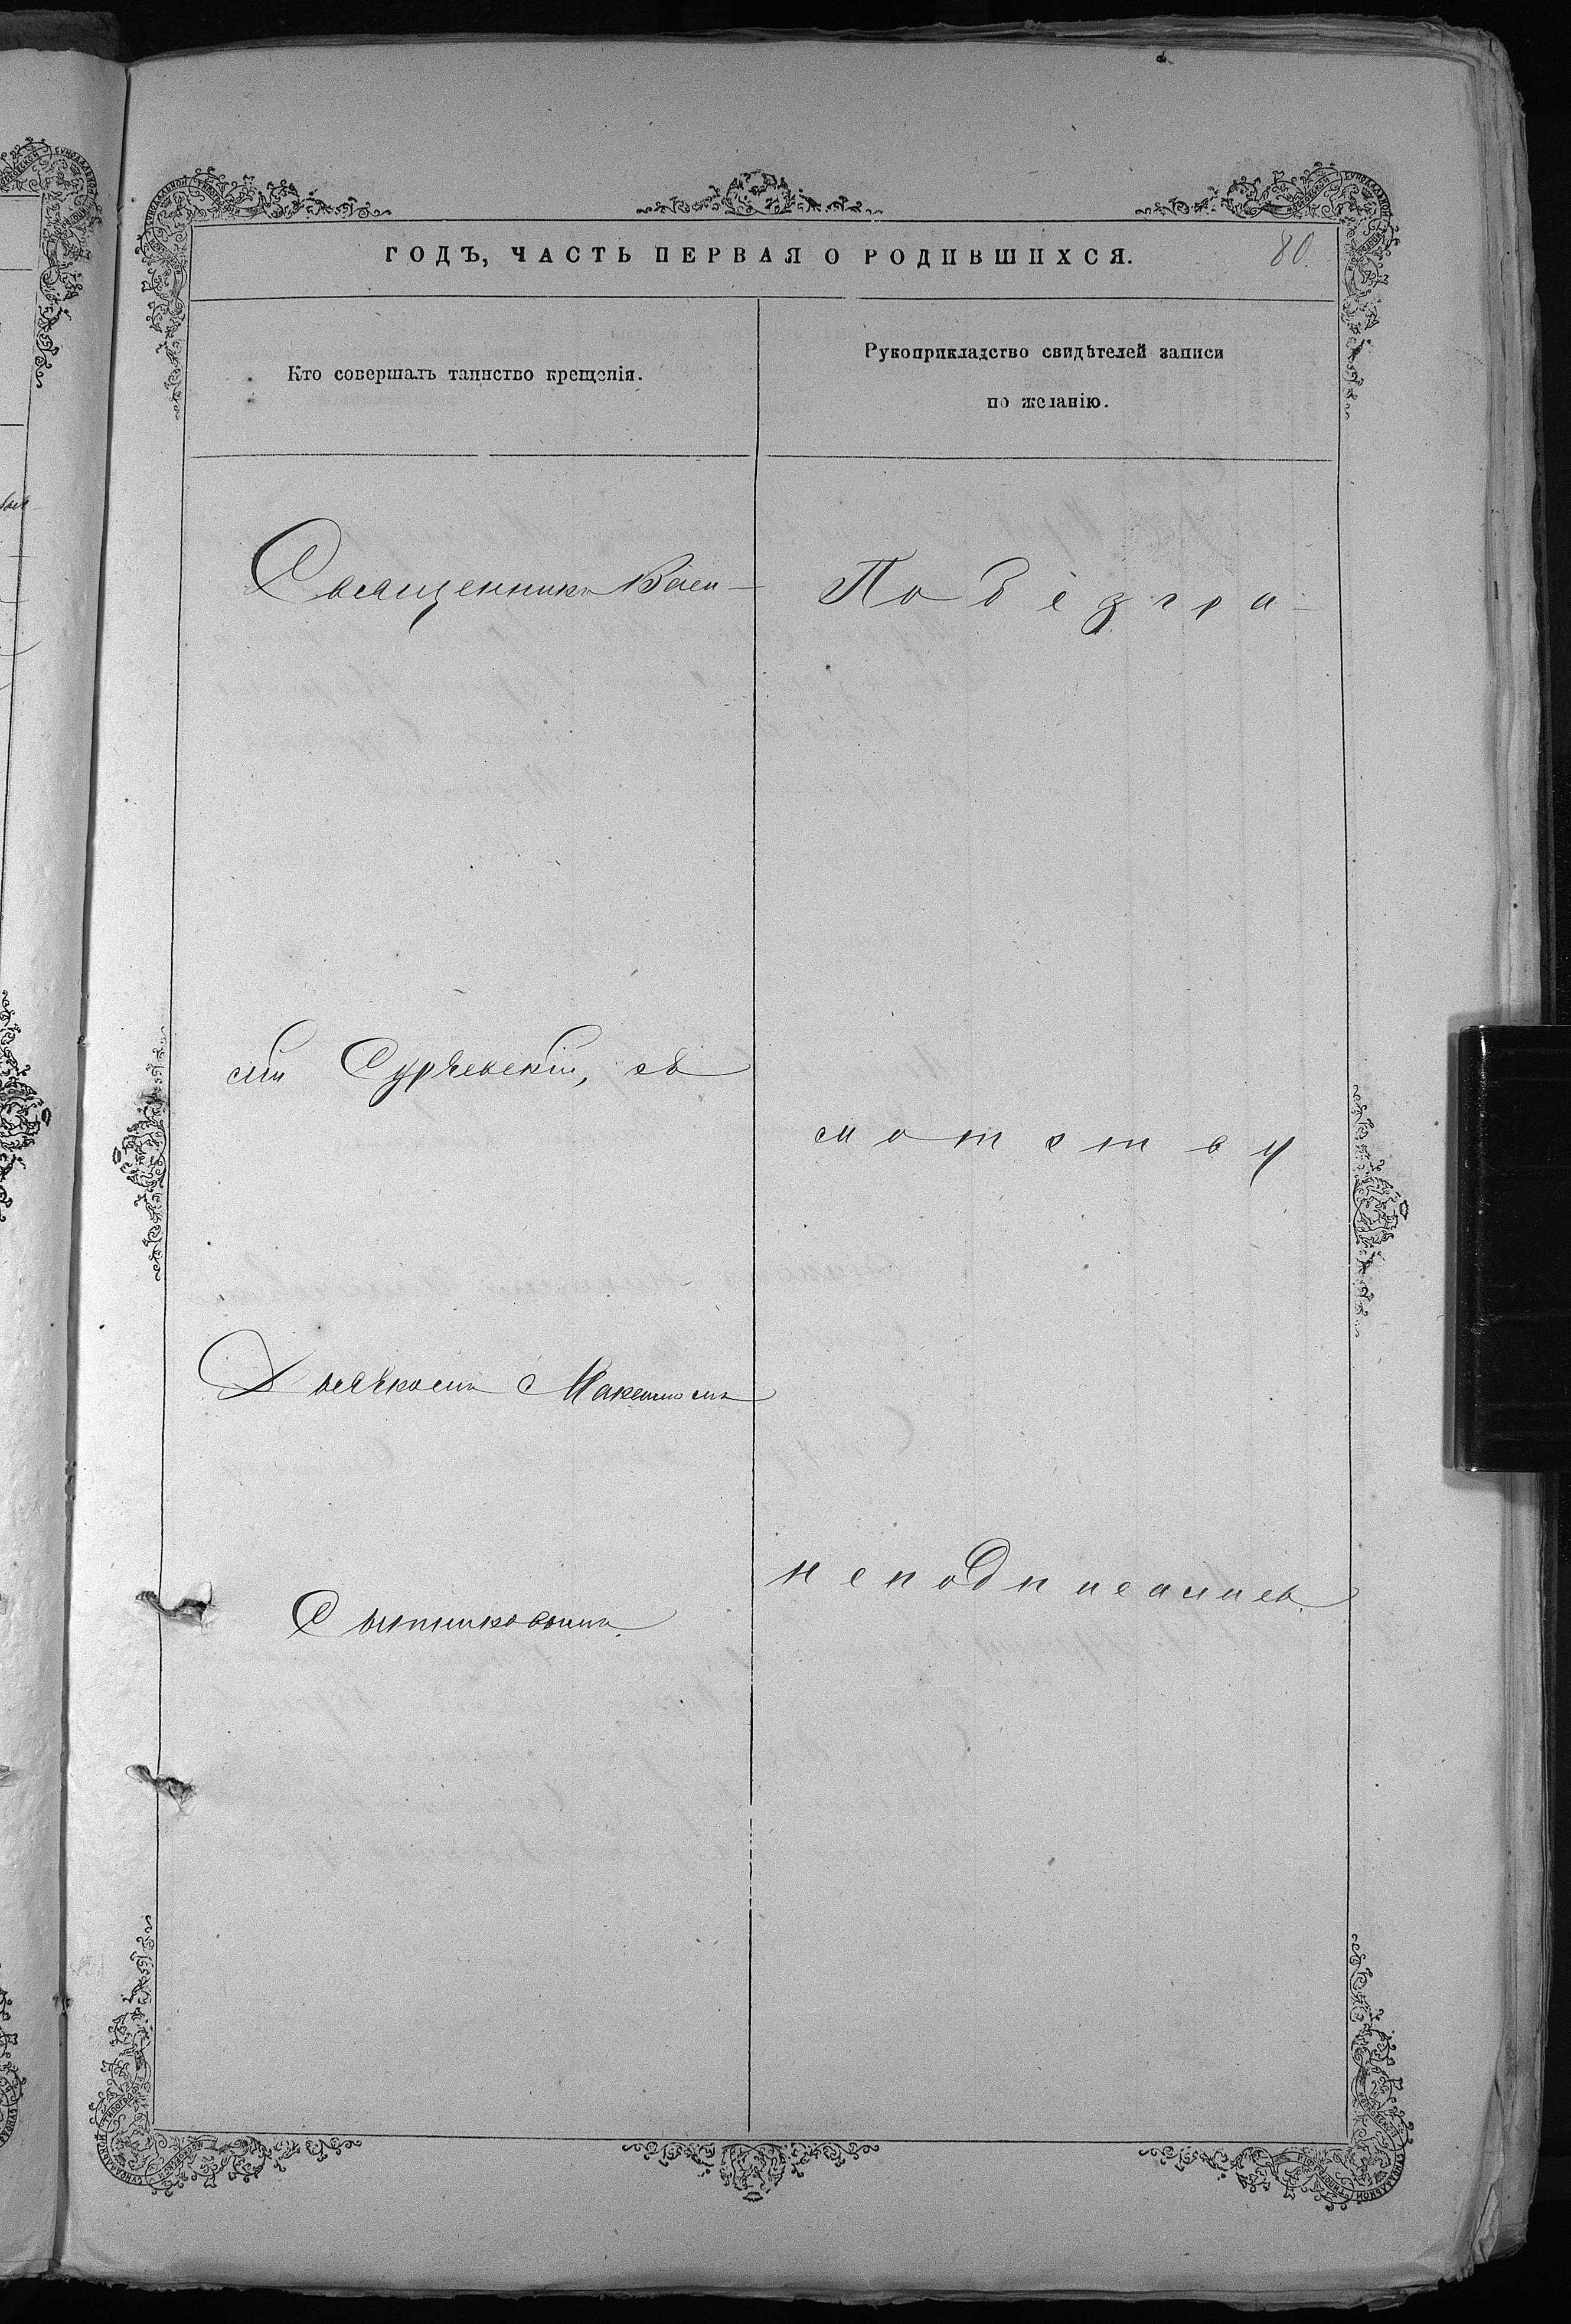 ГОДЪ, ЧАСТЬ ПЕРВАЯ О РОДИВШИХСЯ.
80.
Кто совершалъ таинство крещенія.
Рукоприкладство свидѣтелей записи
по желанію.
Священникъ Васи-
лій Сурѣевскій, съ
Дьячкомъ Максимомъ
Сытниковымъ.
По безгра-
мотству
неподписались.